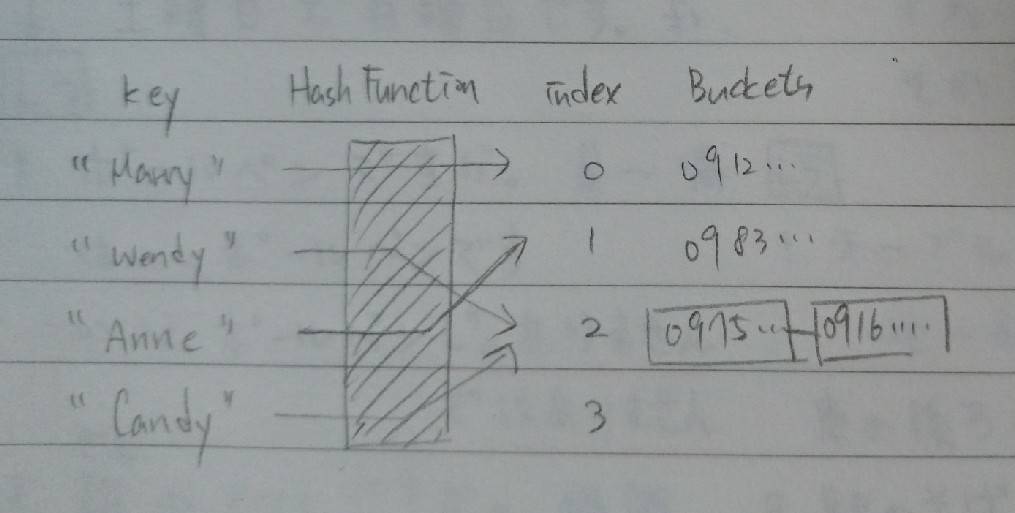 key Hash Function index Buckets
"Harry" 0 0912...
"Wendy" 1 0983...
"Anne" 2 0975... 0916.....
"Candy" 3